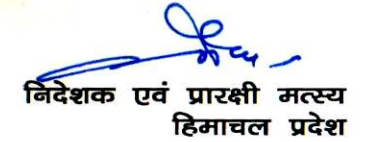 निदेशक एवं प्रारक्षी मत्स्य
हिमाचल प्रदेश